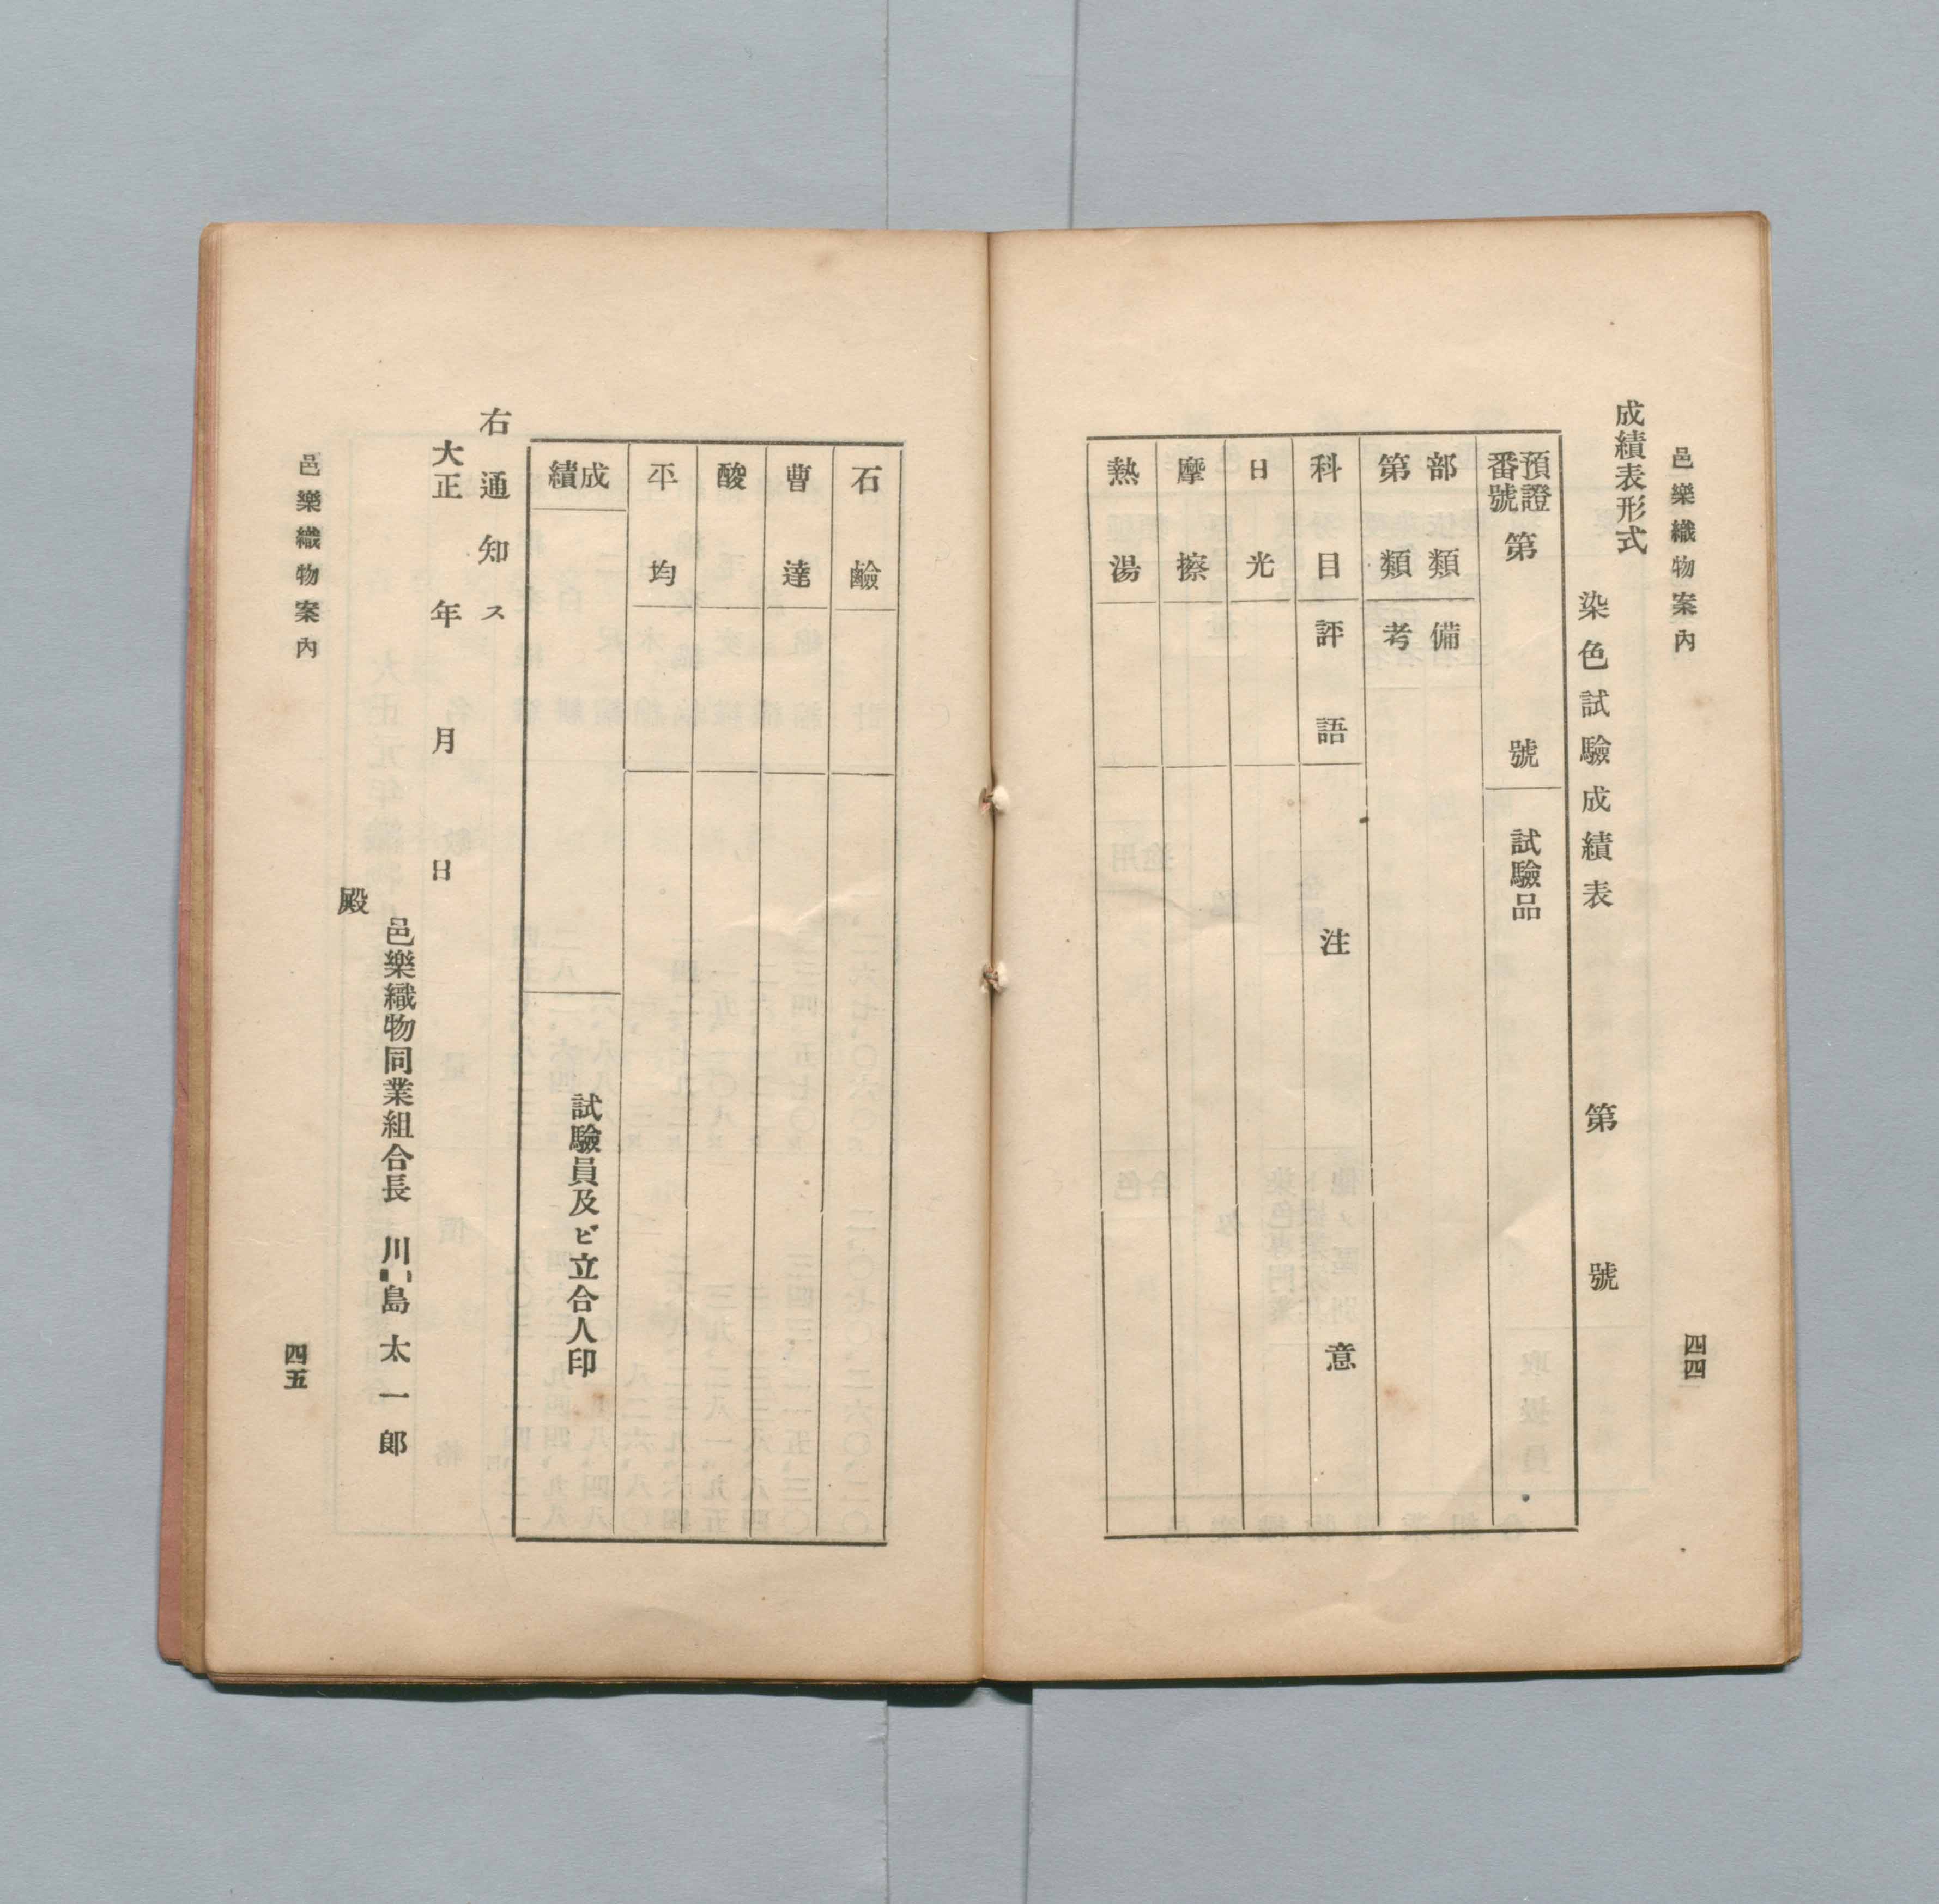 邑樂織物案內
四四
成績表形式
染色試驗成績表　第　號
預證番號　第　號　試驗品
部類　備
第類　考
科目　評語　注意
日光
摩擦
熱湯
石鹼
曹達
酸
平均
成績　試驗員及ビ立合人印
右通知ス
大正　年　月　日
邑樂織物同業組合長　川島太一郎
殿
邑樂織物案內
四五